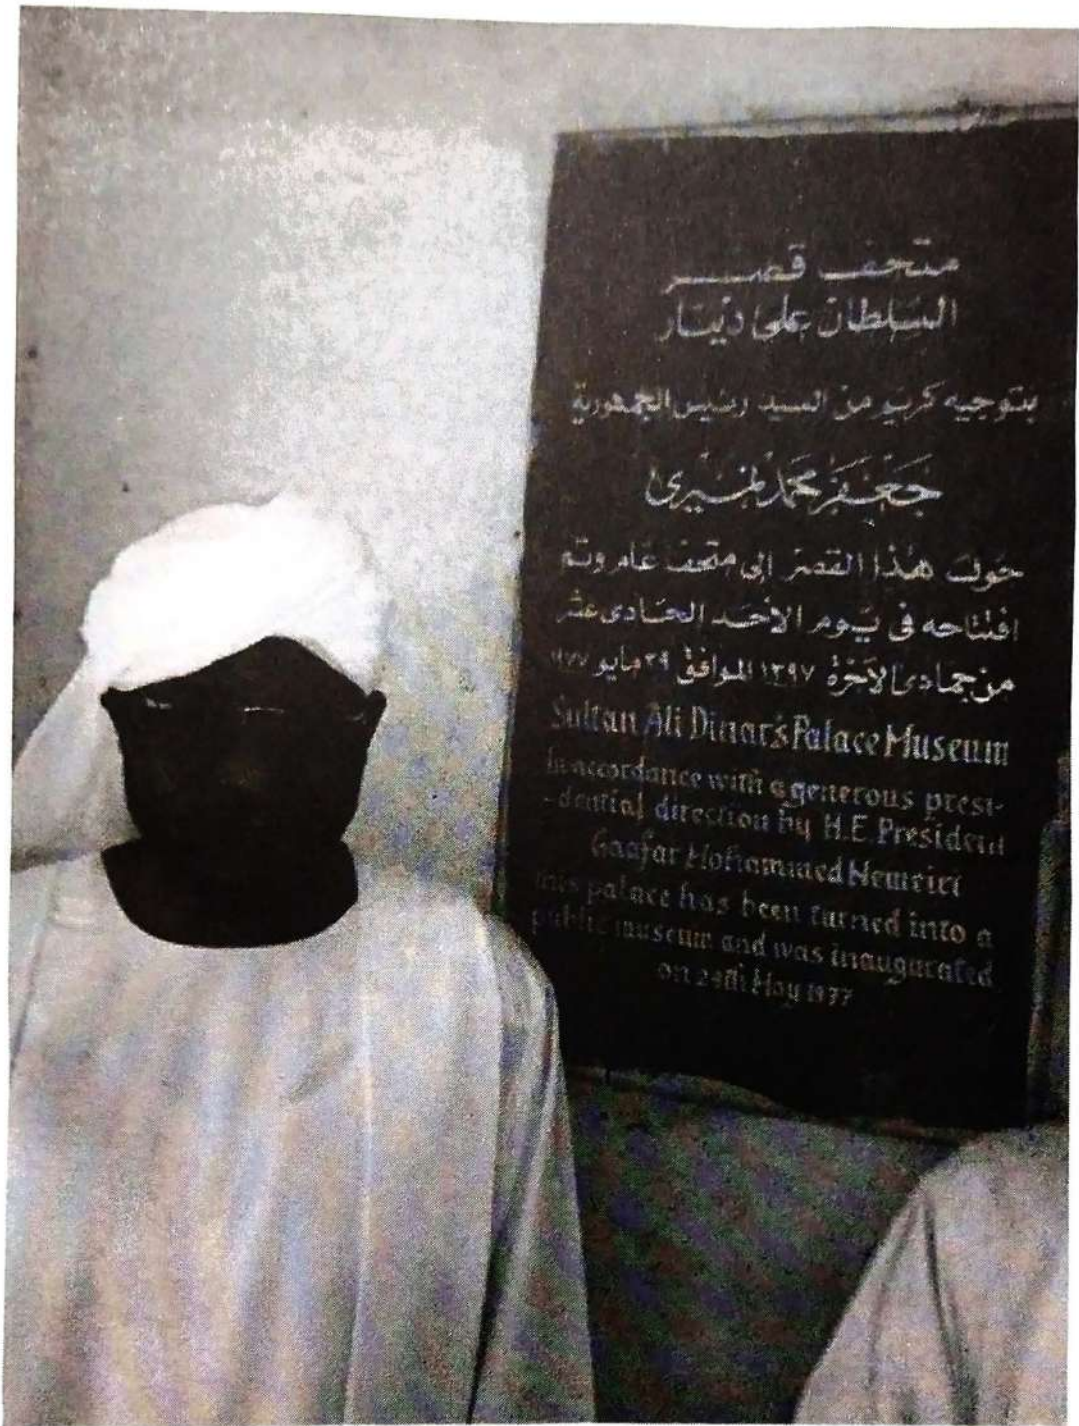 متحف قصر
السلطان على دينار
بتوجيه كريم من السيد رئيس الجمهورية
جعفر محمد نميرى
حولت هذا القصر إلى متحف عام وتم
افتتاحه فى يوم الأحد الحادى عشر
من جمادى الآخرة ١٣٩٧ الموافق ٢٩ مايو ١٩٧٧
Sultan Ali Dinar's Palace Museum
In accordance with a generous presi-
-dential direction by H.E. President
Gaafar Mohammed Nemeiri
this palace has been turned into a
public museum and was inaugurated
on 29th May 1977